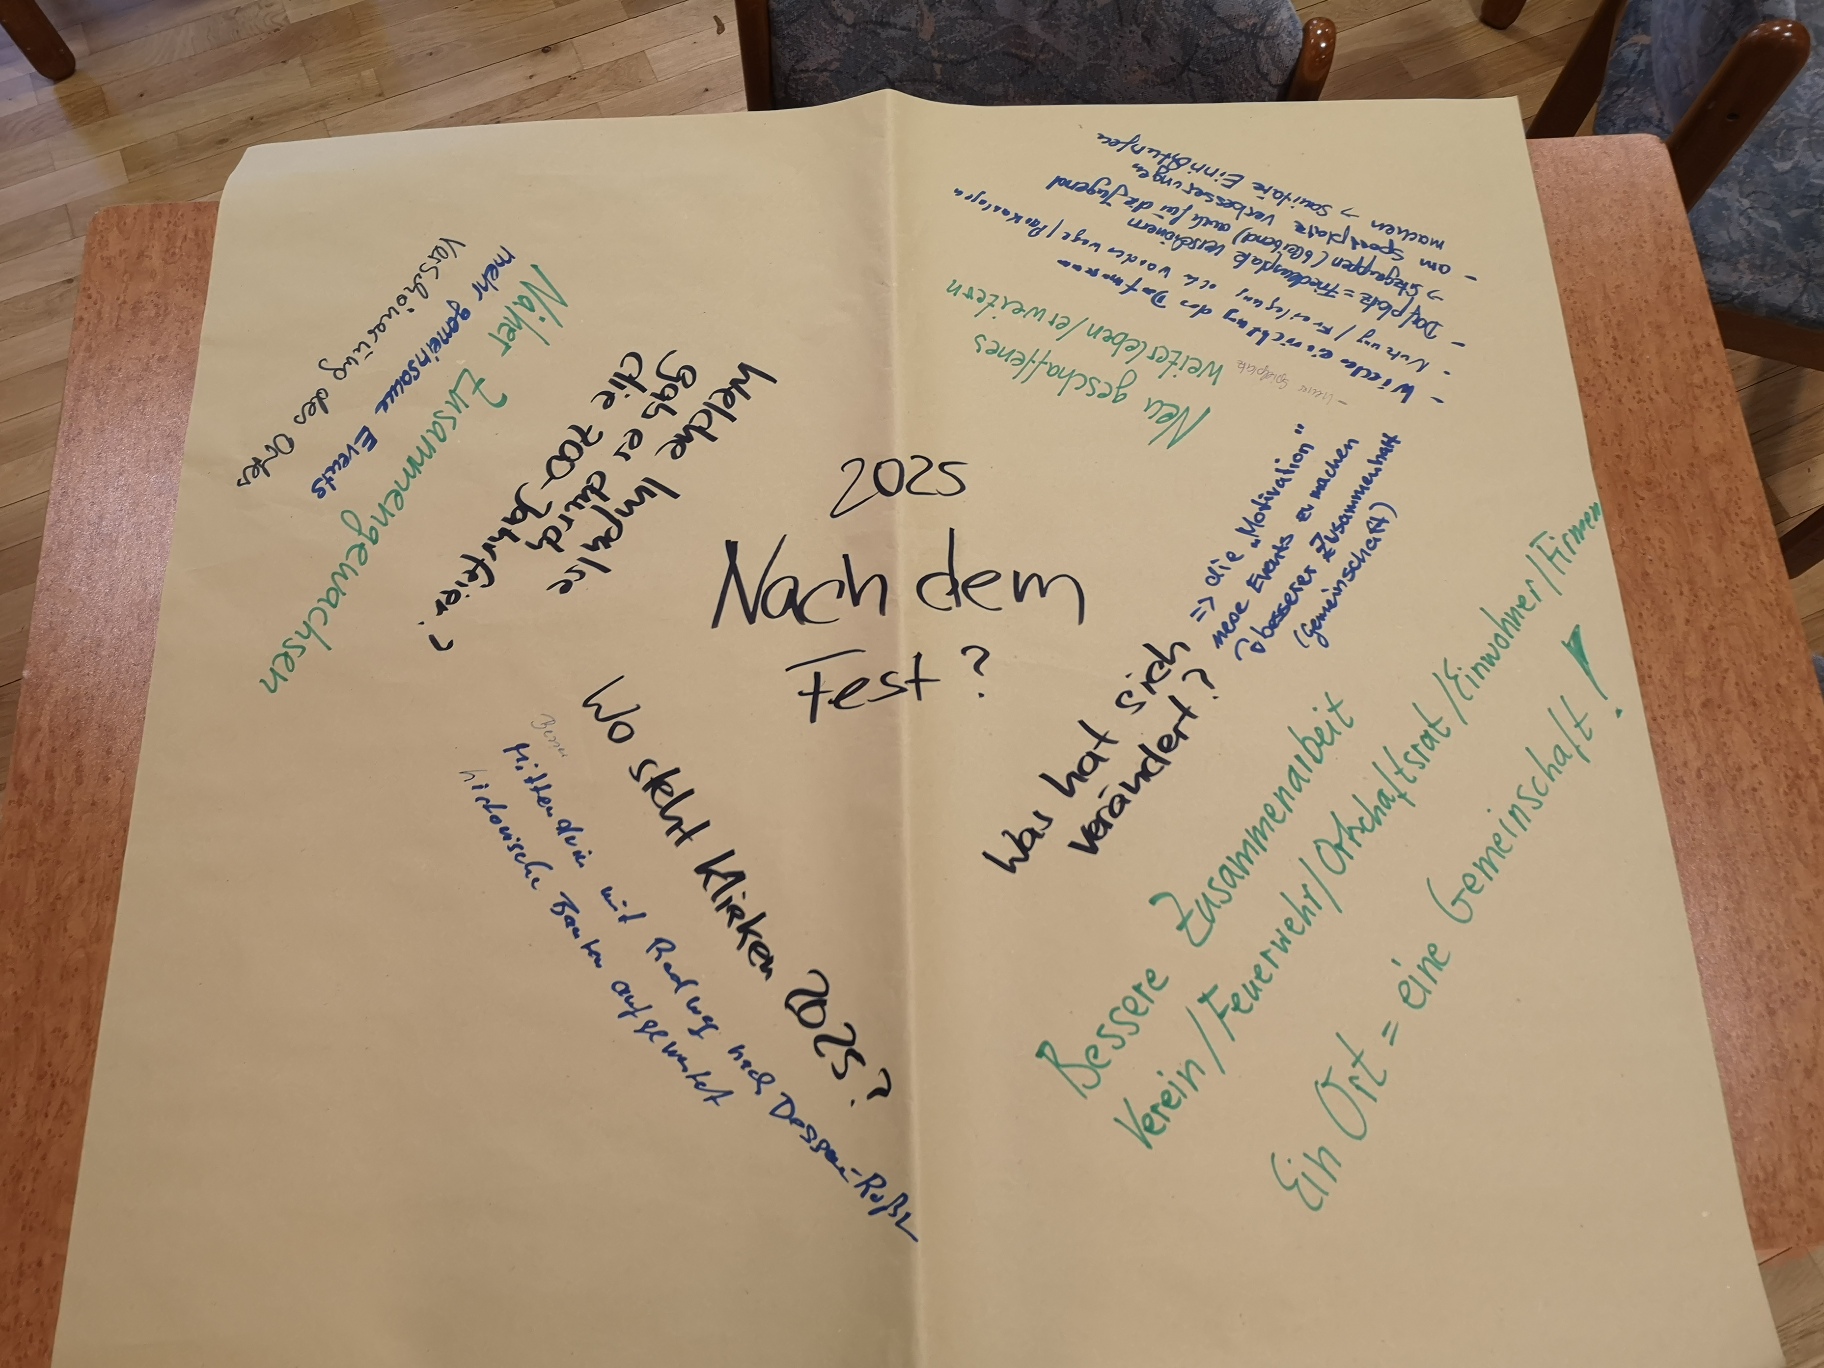 2025
Nach dem
Fest?
Welche Impulse
gab es durch
die 700-Jahrfeier?
Näher Zusammengewachsen
mehr gemeinsame Events
Verschönerung des Ortes
Neu geschaffenes
weiterleben/erweitern
- neuer Spielplatz
- Wieder einrichtung des Dorfmuseum
- Nutzung / Freilegung alter Wander wege / Parkanlagen
- Dorfplatz = Friedensplatz verschönern
→ Sitzgruppen (bleibend) auch für die Jugend
- am Sportplatz Verbesserungen
machen → Sanitäre Einrichtungen
Was hat sich
verändert?
=> die „Motivation“
neue Events zu machen
besserer Zusammenhalt
(Gemeinschaft)
Bessere Zusammenarbeit
Verein/Feuerwehr/Ortschaftsrat/Einwohner/Firmen
Ein Ort = eine Gemeinschaft!
Wo steht Klieken 2025?
Besser
Mittendrin mit Radweg nach Dessau-Roßl
historische Bauten aufgewertet